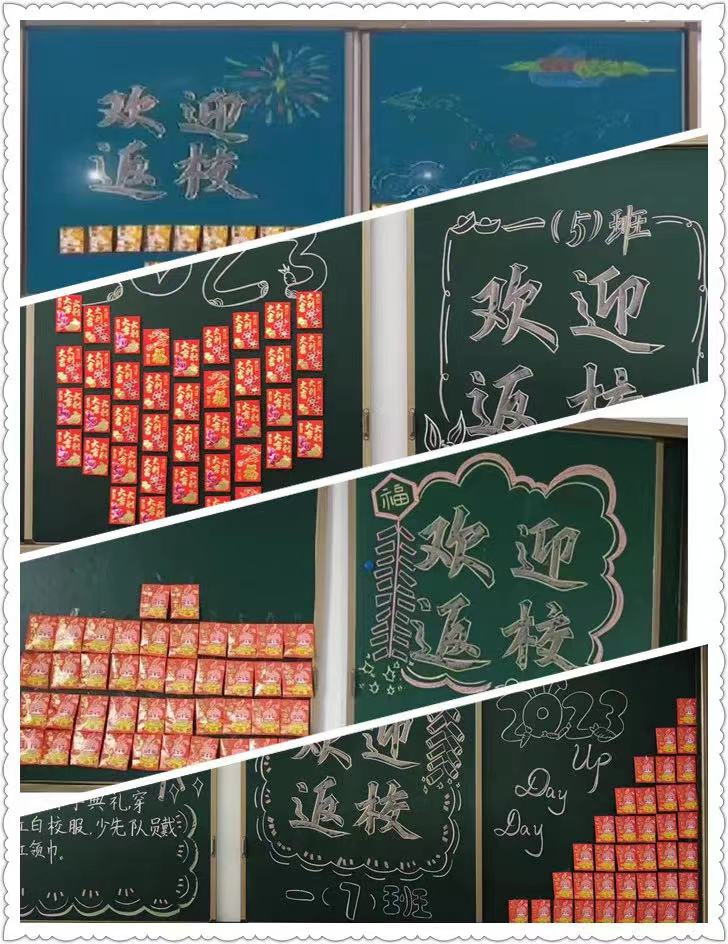 欢迎
返校
2023
一(5)班
欢迎
返校
福
欢迎
返校
典礼,穿
红白校服,少先队员戴
红领巾。
欢迎
返校
一(7)班
2023
Up
Day
Day
大吉
大利